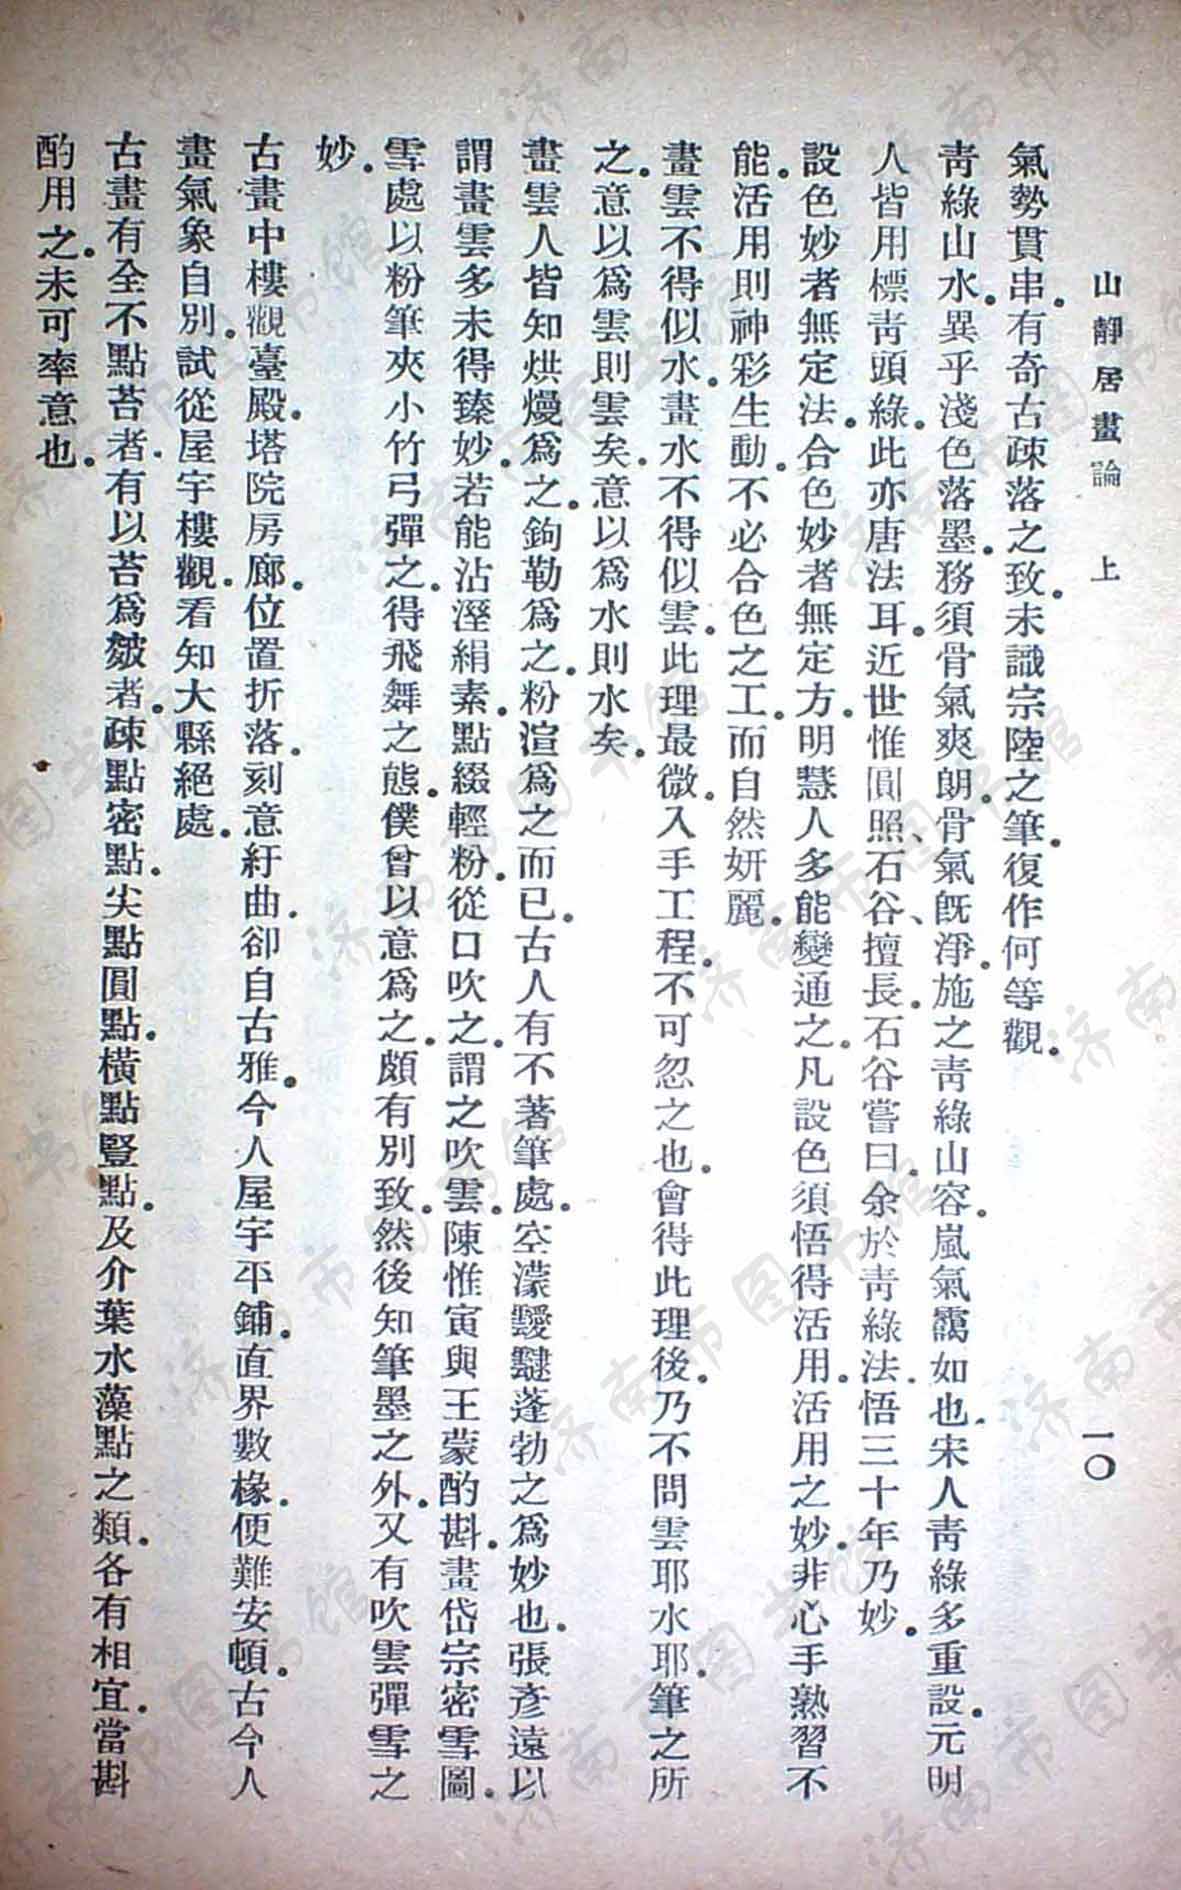 山靜居畫論 上 一〇
氣勢貫串。有奇古疎落之致。未識宗陸之筆。復作何等觀。
靑綠山水。異乎淺色落墨。務須骨氣爽朗。骨氣旣淨。施之靑綠山容。嵐氣靄如也。宋人靑綠多重設。元明
人皆用標靑頭綠。此亦唐法耳。近世惟圓照、石谷、擅長。石谷嘗曰。余於靑綠法。悟三十年乃妙。
設色妙者無定法。合色妙者無定方。明慧人多能變通之。凡設色須悟得活用。活用之妙。非心手熟習不
能。活用則神彩生動。不必合色之工。而自然妍麗。
畫雲不得似水。畫水不得似雲。此理最微。入手工程。不可忽之也。會得此理後。乃不問雲耶水耶。筆之所
之。意以爲雲則雲矣。意以爲水則水矣。
畫雲人皆知烘熳爲之。鉤勒爲之。粉渲爲之而已。古人有不著筆處。空濛靉靆蓬勃之爲妙也。張彥遠以
謂畫雲多未得臻妙。若能沾溼絹素。點綴輕粉。從口吹之。謂之吹雲。陳惟寅與王蒙酌斟。畫岱宗密雪圖。
雪處以粉筆夾小竹弓彈之。得飛舞之態。僕曾以意爲之。頗有別致。然後知筆墨之外。又有吹雲彈雪之
妙。
古畫中樓觀臺殿。塔院房廊。位置折落。刻意紆曲。卻自古雅。今人屋宇平鋪。直界數椽。便難安頓。古今人
畫氣象自別。試從屋宇樓觀。看知大縣絕處。
古畫有全不點苔者。有以苔爲皴者。疎點密點。尖點圓點。橫點豎點。及介葉水藻點之類。各有相宜。當斟
酌用之。未可率意也。
济南市图书馆